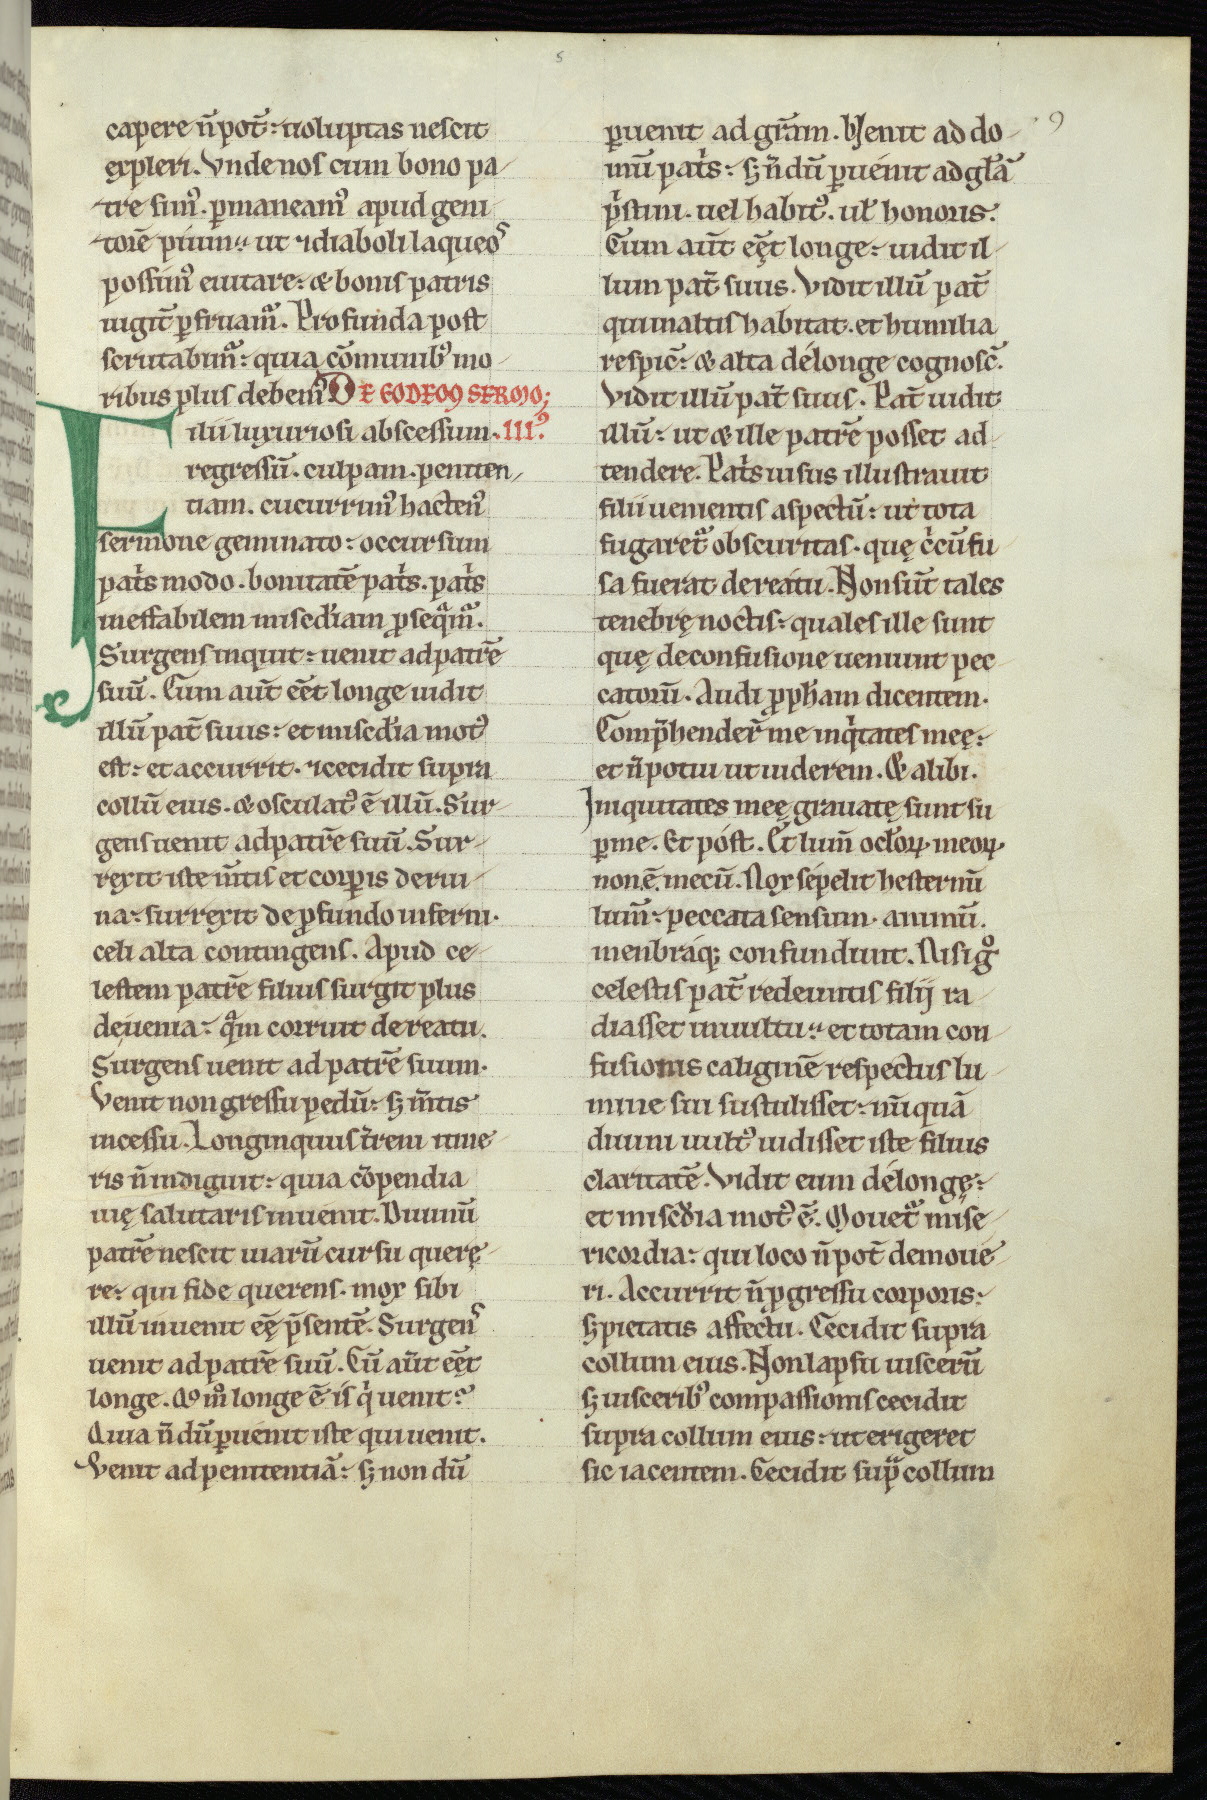 5
9
capere n̄ pot̄: uoluptas nescit
expleri. Vnde nos cum bono pa-
tre simꝰ. ꝑmaneamꝰ apud geni-
torē pium: ut ⁊ diaboli laqueos
possimꝰ euitare: & bonis patris
iugit̄ ꝑfruamᷣ. Profunda post
scrutabimᷣ: quia cōmunibꝰ mo-
ribus plus debemꝰ DE EODEM SERMO;
Filii luxuriosi abscessum. IIIꝰ
regressū. culpam. peniten-
tiam. cucurrimꝰ hactenꝰ
sermone geminato: occursum
pat̄s modo. bonitatē pat̄s. pat̄s
ineffabilem mis̄cdiam ꝓseqᷣmᷣ.
Surgens inquit: uenit ad patrē
suū. Cum aūt eēt longe uidit
illū pat̄ suus: et mis̄cdia motꝰ
est: et accurrit. ⁊ cecidit supra
collū eius. & osculatꝰ ē illū. Sur-
gens uenit ad patrē suū. Sur-
rexit iste m̄tis et corꝑis de rui-
na: surrexit de ꝓfundo inferni.
celi alta contingens. Apud ce-
lestem patrē filius surgit plus
de uenia: qᷓm corruit de reatu.
Surgens uenit ad patrē suum.
Venit non gressu pedū: ꞩ m̄tis
incessu. Longinquus t̄reni itine-
ris n̄ indiguit: quia cōpendia
uię salutaris inuenit. Diuinū
patrē nescit uiarū cursu querę-
re: qui fide querens. mox sibi
illū inuenit eę̄ p̄sentē. Surgens
uenit ad patrē suū. Cū aūt eēt
longe. Qꝰmͦ longe ē is qͥ uenit?
Quia n̄dū ꝑuenit iste qui uenit.
Venit ad penitentiā: ꞩ non dū
ꝑuenit ad gr̄am. Venit ad do-
mū pat̄s: ꞩ n̄dū ꝑuenit ad gl̄ā
pͥstini. uel habitꝰ. ul̄ honoris.
Cum aūt eēt longe: uidit il-
lum pat̄ suus. Vidit illū pat̄
qui in altis habitat. et humilia
respic̄: & alta de longe cognosc̄.
Vidit illū pat̄ suus. Pat̄ uidit
illū: ut & ille patrē posset ad-
tendere. Pat̄s uisus illustrauit
filii uenientis aspectū: ut tota
fugaretᷣ obscuritas. quę cͥcūfu-
sa fuerat de reatu. Non sūt tales
tenebrę noctis: quales ille sunt
quę de confusione ueniunt pec-
catorū. Audi ꝓph̄am dicentem.
Comp̄hender̄ me inqͥtates meę:
et n̄ potui ut uiderem. & alibi.
Iniquitates meę grauatę sunt su-
ꝑ me. Et post. Et lum̄ ocl̄oꝝ meoꝝ
non ē mecū. Nox sepelit hesternū
lum̄: peccata sensum. animū.
menbraq; confundunt. Nisi gͦ
celestis pat̄ redeuntis filij ra-
diasset in uultu: et totam con-
fusionis caliginē respectus lu-
mine sui sustulisset: nū quā
diuini uultꝰ uidisset iste filius
claritatē. Vidit eum de longę:
et mis̄cdia motꝰ ē. Mouetᷣ mise-
ricordia: qui loco n̄ pot̄ demoue-
ri. Accurrit n̄ ꝓgressu corporis:
ꞩ pietatis affectu. Cecidit supra
collum eius. Non lapsu uiscerū
ꞩ uisceribꝰ compassionis cecidit
supra collum eius: ut erigeret
sic iacentem. Cecidit supᷓ collum